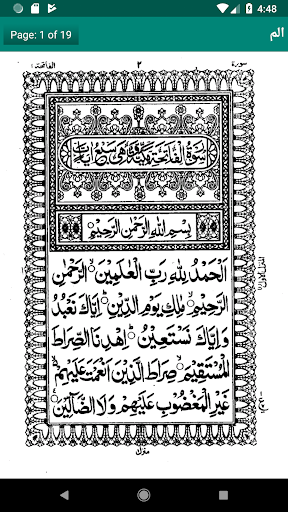 4:48
Page: 1 of 19
الم
سورة
٢
الفاتحة
سورة الفاتحة مكية وهي سبع ايات
بِسْمِ اللهِ الرَّحْمٰنِ الرَّحِيْمِ
اَلْحَمْدُ لِلّٰهِ رَبِّ الْعٰلَمِيْنَ ۙ الرَّحْمٰنِ
الرَّحِيْمِ ۙ مٰلِكِ يَوْمِ الدِّيْنِ ؕ اِيَّاكَ نَعْبُدُ
وَاِيَّاكَ نَسْتَعِيْنُ ؕ اِهْدِنَا الصِّرَاطَ
الْمُسْتَقِيْمَ ۙ صِرَاطَ الَّذِيْنَ اَنْعَمْتَ عَلَيْهِمْ
غَيْرِ الْمَغْضُوْبِ عَلَيْهِمْ وَلَا الضَّآلِّيْنَ
منزل